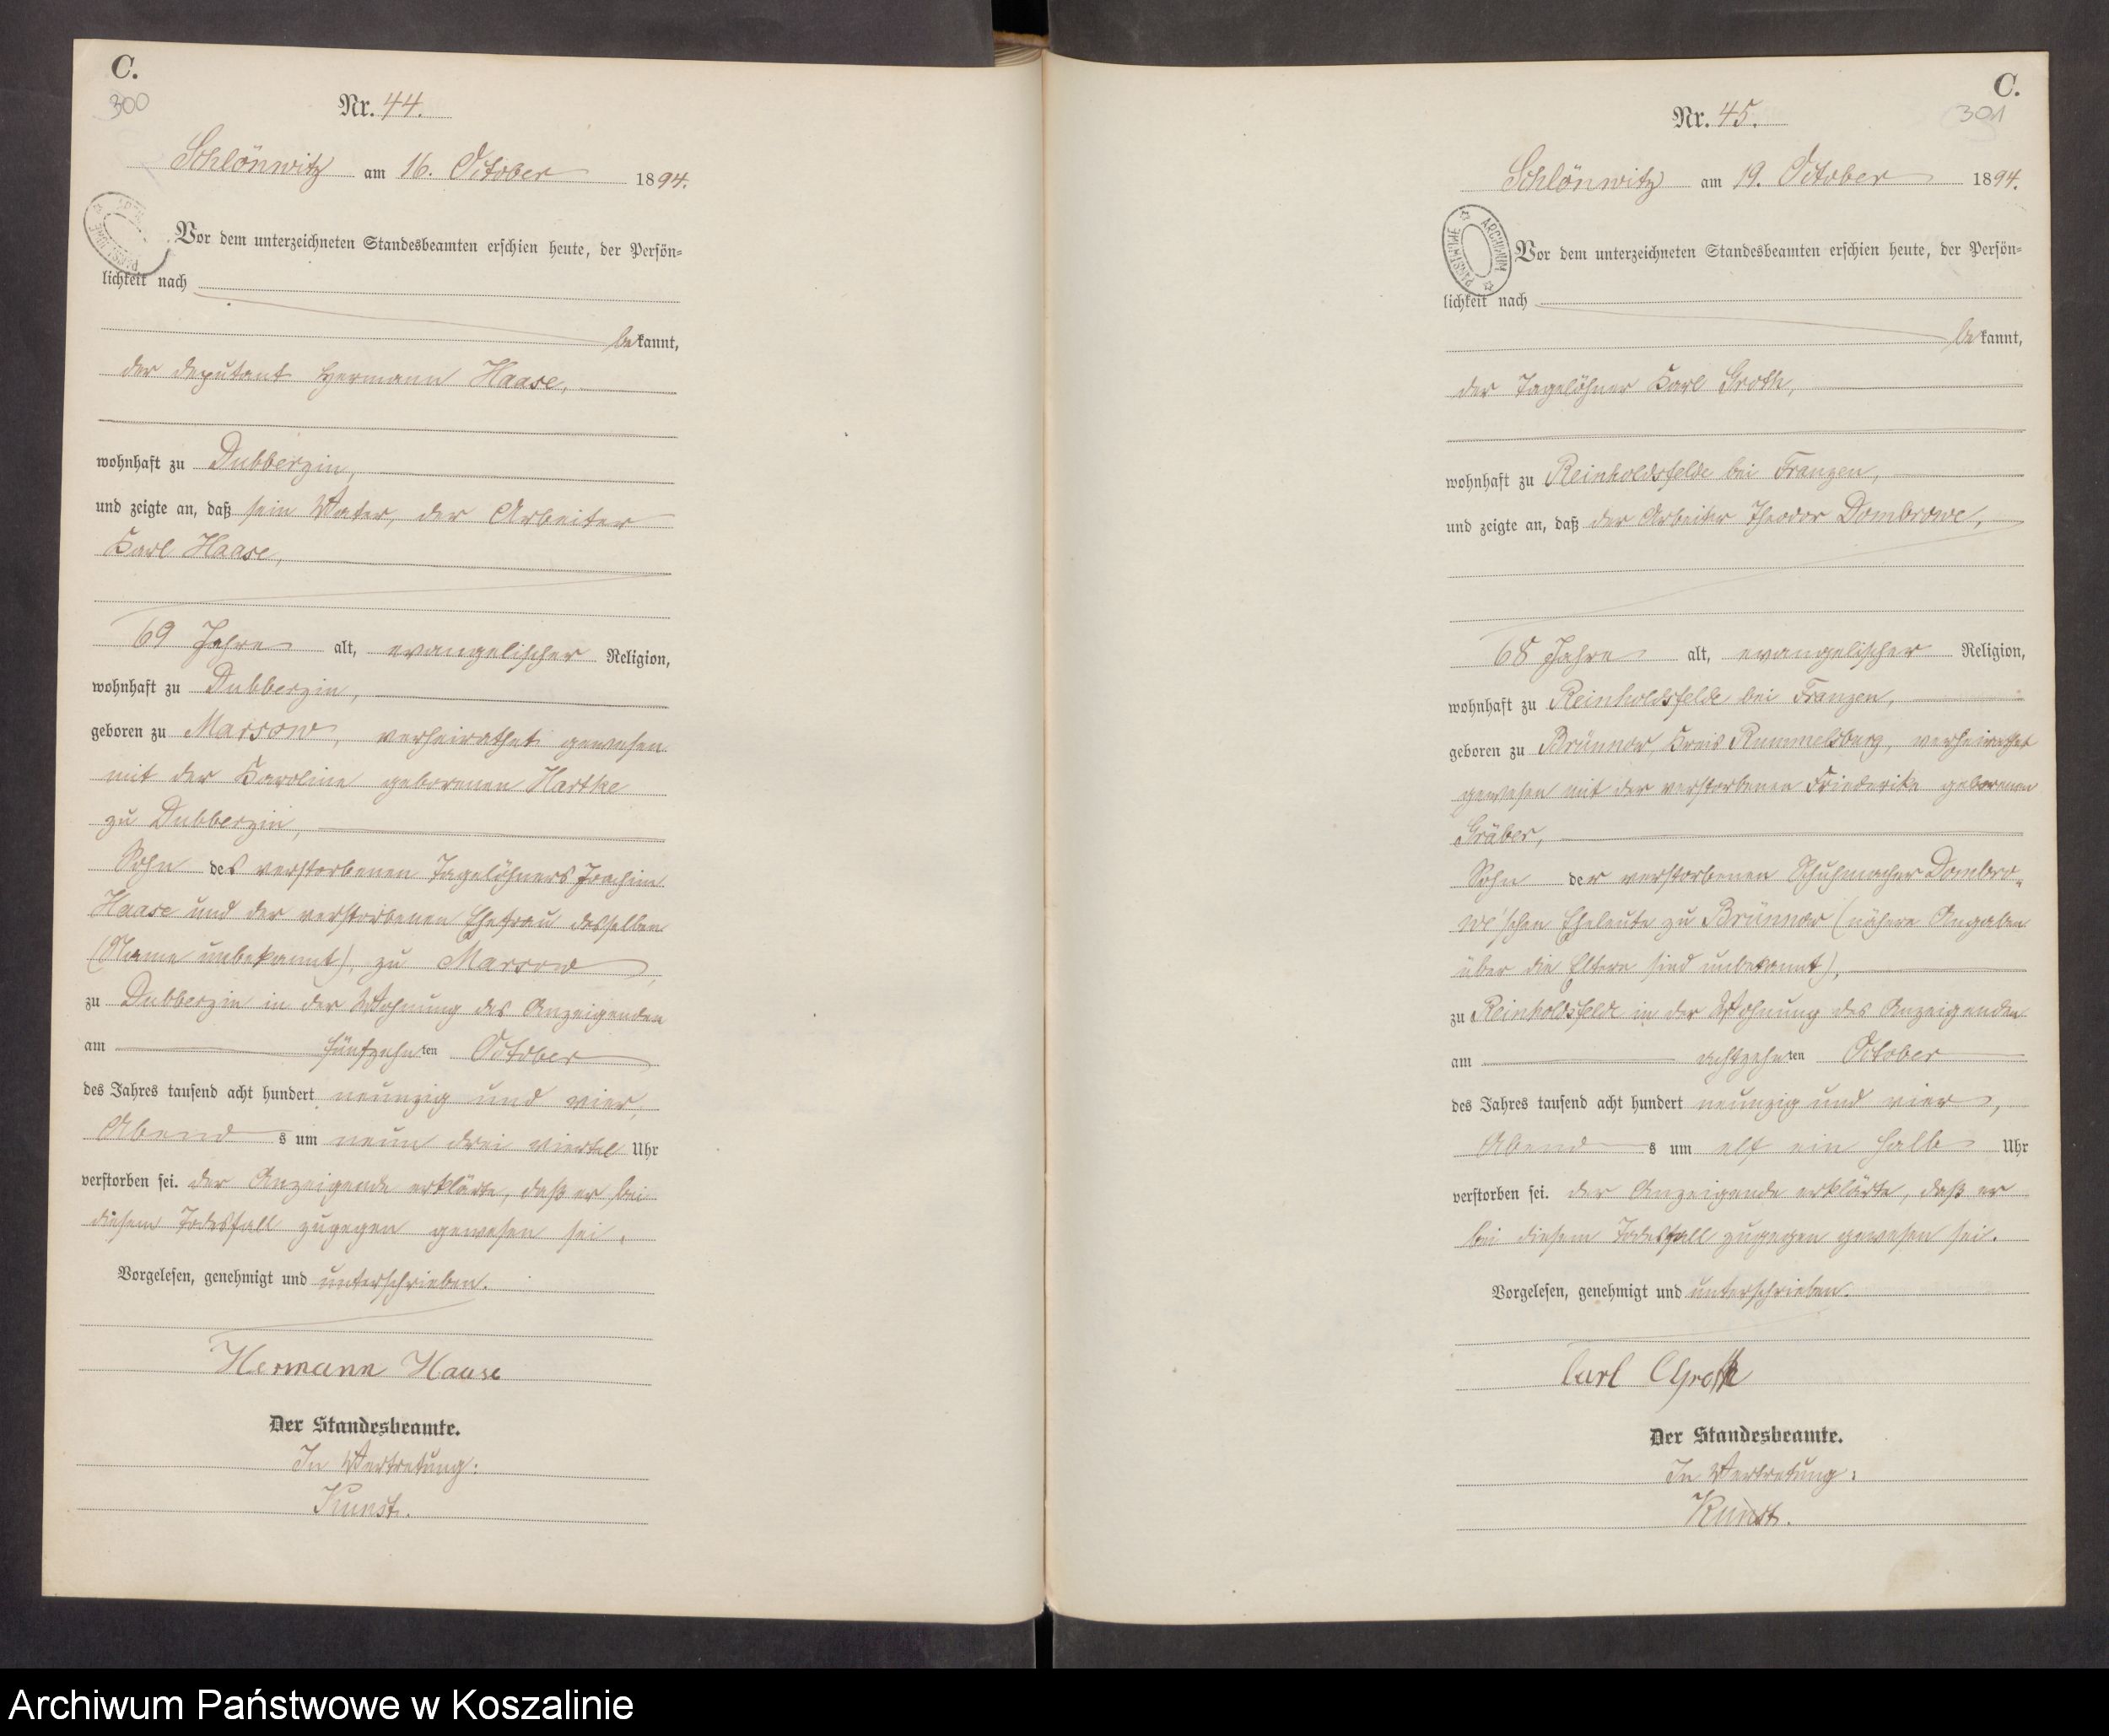 C.
300
Nr. 44.
Schlönwitz am 16. October 1894.
Vor dem unterzeichneten Standesbeamten erschien heute, der Persön=
lichkeit nach
bekannt,
der Deputant Hermann Haase,
wohnhaft zu Dubberzin,
und zeigte an, daß sein Vater, der Arbeiter
Karl Haase,
69 Jahre alt, evangelischer Religion,
wohnhaft zu Dubberzin,
geboren zu Marsow, verheirathet gewesen
mit der Karoline geborenen Hartke
zu Dubberzin,
Sohn des verstorbenen Tagelöhners Joachim
Haase und der verstorbenen Ehefrau desselben
(Name unbekannt), zu Marsow,
zu Dubberzin in der Wohnung des Anzeigenden
am fünfzehnten October
des Jahres tausend acht hundert neunzig und vier,
Abends um neun drei viertel Uhr
verstorben sei. der Anzeigende erklärte, daß er bei
diesem Todesfall zugegen gewesen sei.
Vorgelesen, genehmigt und unterschrieben.
Hermann Haase
Der Standesbeamte.
In Vertretung:
Kunst.
C.
301
Nr. 45.
Schlönwitz am 19. October 1894.
ARCHIWUM PAŃSTWOWE
Vor dem unterzeichneten Standesbeamten erschien heute, der Persön=
lichkeit nach
bekannt,
der Tagelöhner Karl Groth,
wohnhaft zu Reinholdsfelde bei Franzen,
und zeigte an, daß der Arbeiter Theodor Dombrowe,
68 Jahre alt, evangelischer Religion,
wohnhaft zu Reinholdsfelde bei Franzen,
geboren zu Brünnow, Kreis Rummelsburg, verheirathet
gewesen mit der verstorbenen Friederike geborenen
Gräber,
Sohn der verstorbenen Schuhmacher Dombro=
we'schen Eheleute zu Brünnow (nähere Angaben
über die Eltern sind unbekannt),
zu Reinholdsfelde in der Wohnung des Anzeigenden
am achtzehnten October
des Jahres tausend acht hundert neunzig und vier,
Abends um elf ein halb Uhr
verstorben sei. der Anzeigende erklärte, daß er
bei diesem Todesfall zugegen gewesen sei.
Vorgelesen, genehmigt und unterschrieben.
Carl Groth
Der Standesbeamte.
In Vertretung:
Kunst.
Archiwum Państwowe w Koszalinie